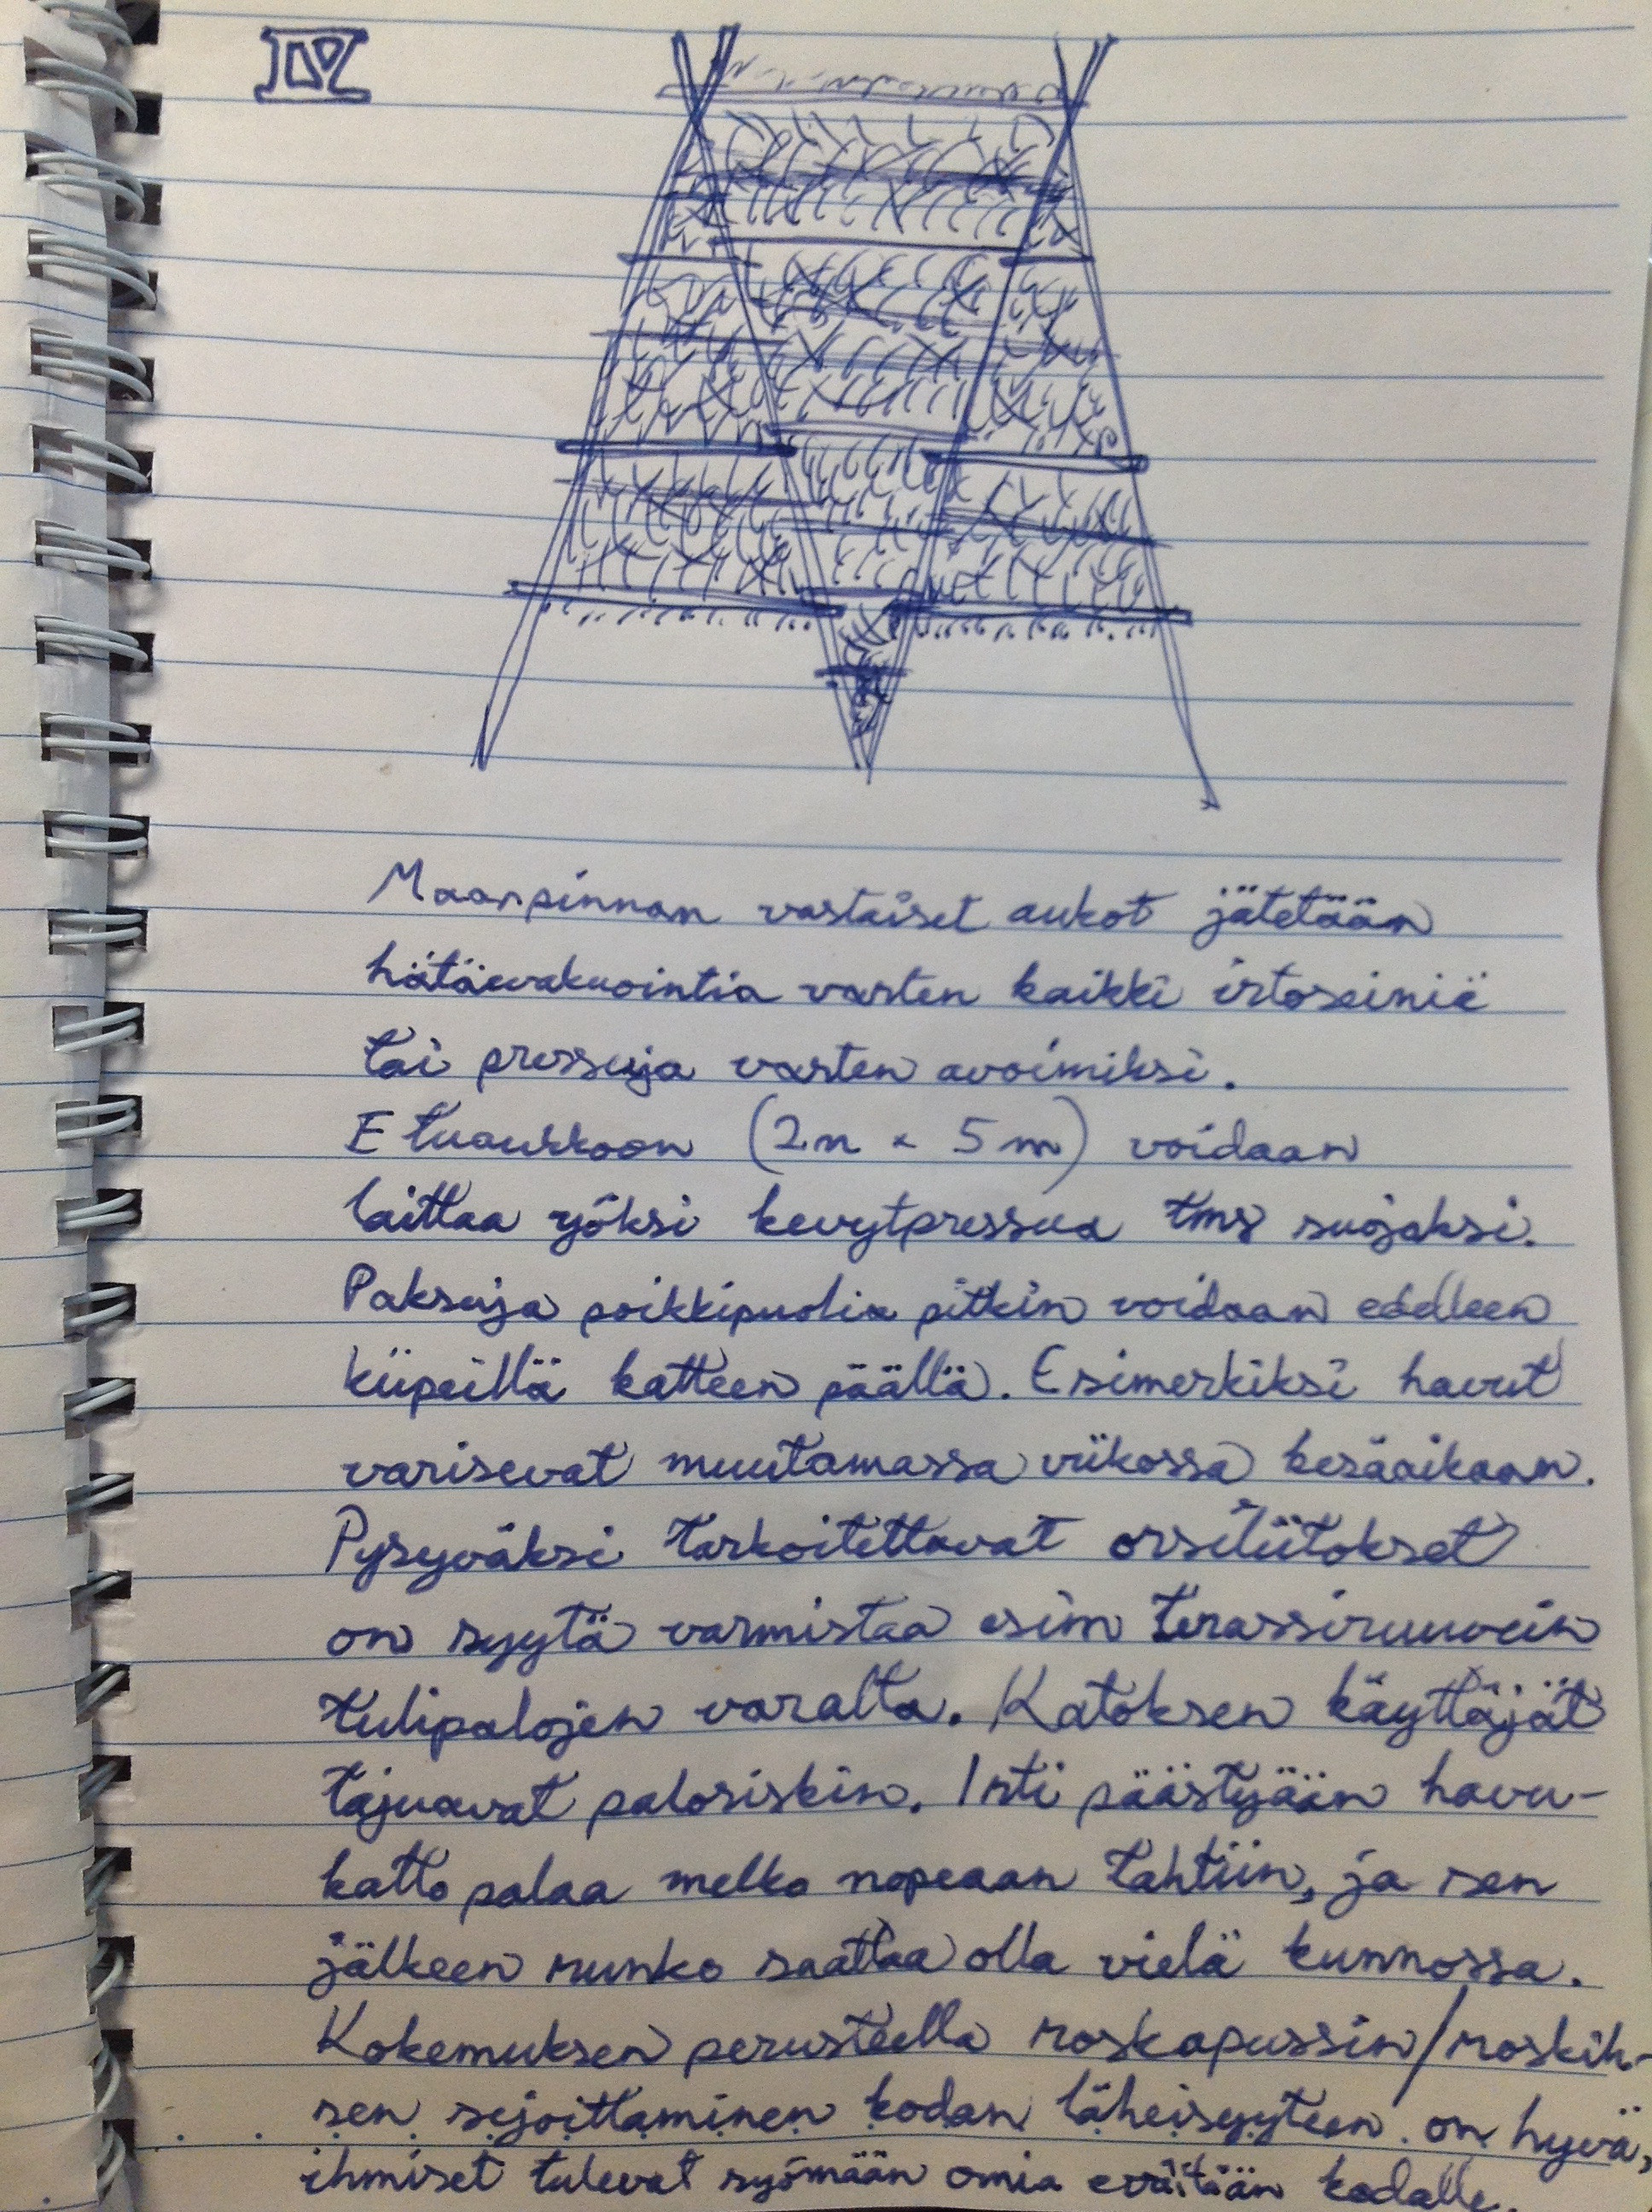 IV
Maanpinnan vastaiset aukot jätetään
hätäevakuointia varten kaikki irtoseiniä
tai pressuja varten avoimiksi.
Etuaukkoon (2m x 5m) voidaan
laittaa yöksi kevytpressua tms suojaksi.
Paksuja poikkipuolia pitkin voidaan edelleen
kiipeillä katteen päällä. Esimerkiksi havut
varisevat muutamassa viikossa kesäaikaan.
Pysyväksi tarkoitettavat orsiliitokset
on syytä varmistaa esim terassiruuvein
tulipalojen varalta. Katoksen käyttäjät
tajuavat paloriskin. Irti päästyään havu-
katto palaa melko nopeaan tahtiin, ja sen
jälkeen runko saattaa olla vielä kunnossa.
Kokemuksen perusteella roskapussin/roskih-
sen sijoittaminen kodan läheisyyteen on hyvä,
ihmiset tulevat syömään omia eväitään kodalle.